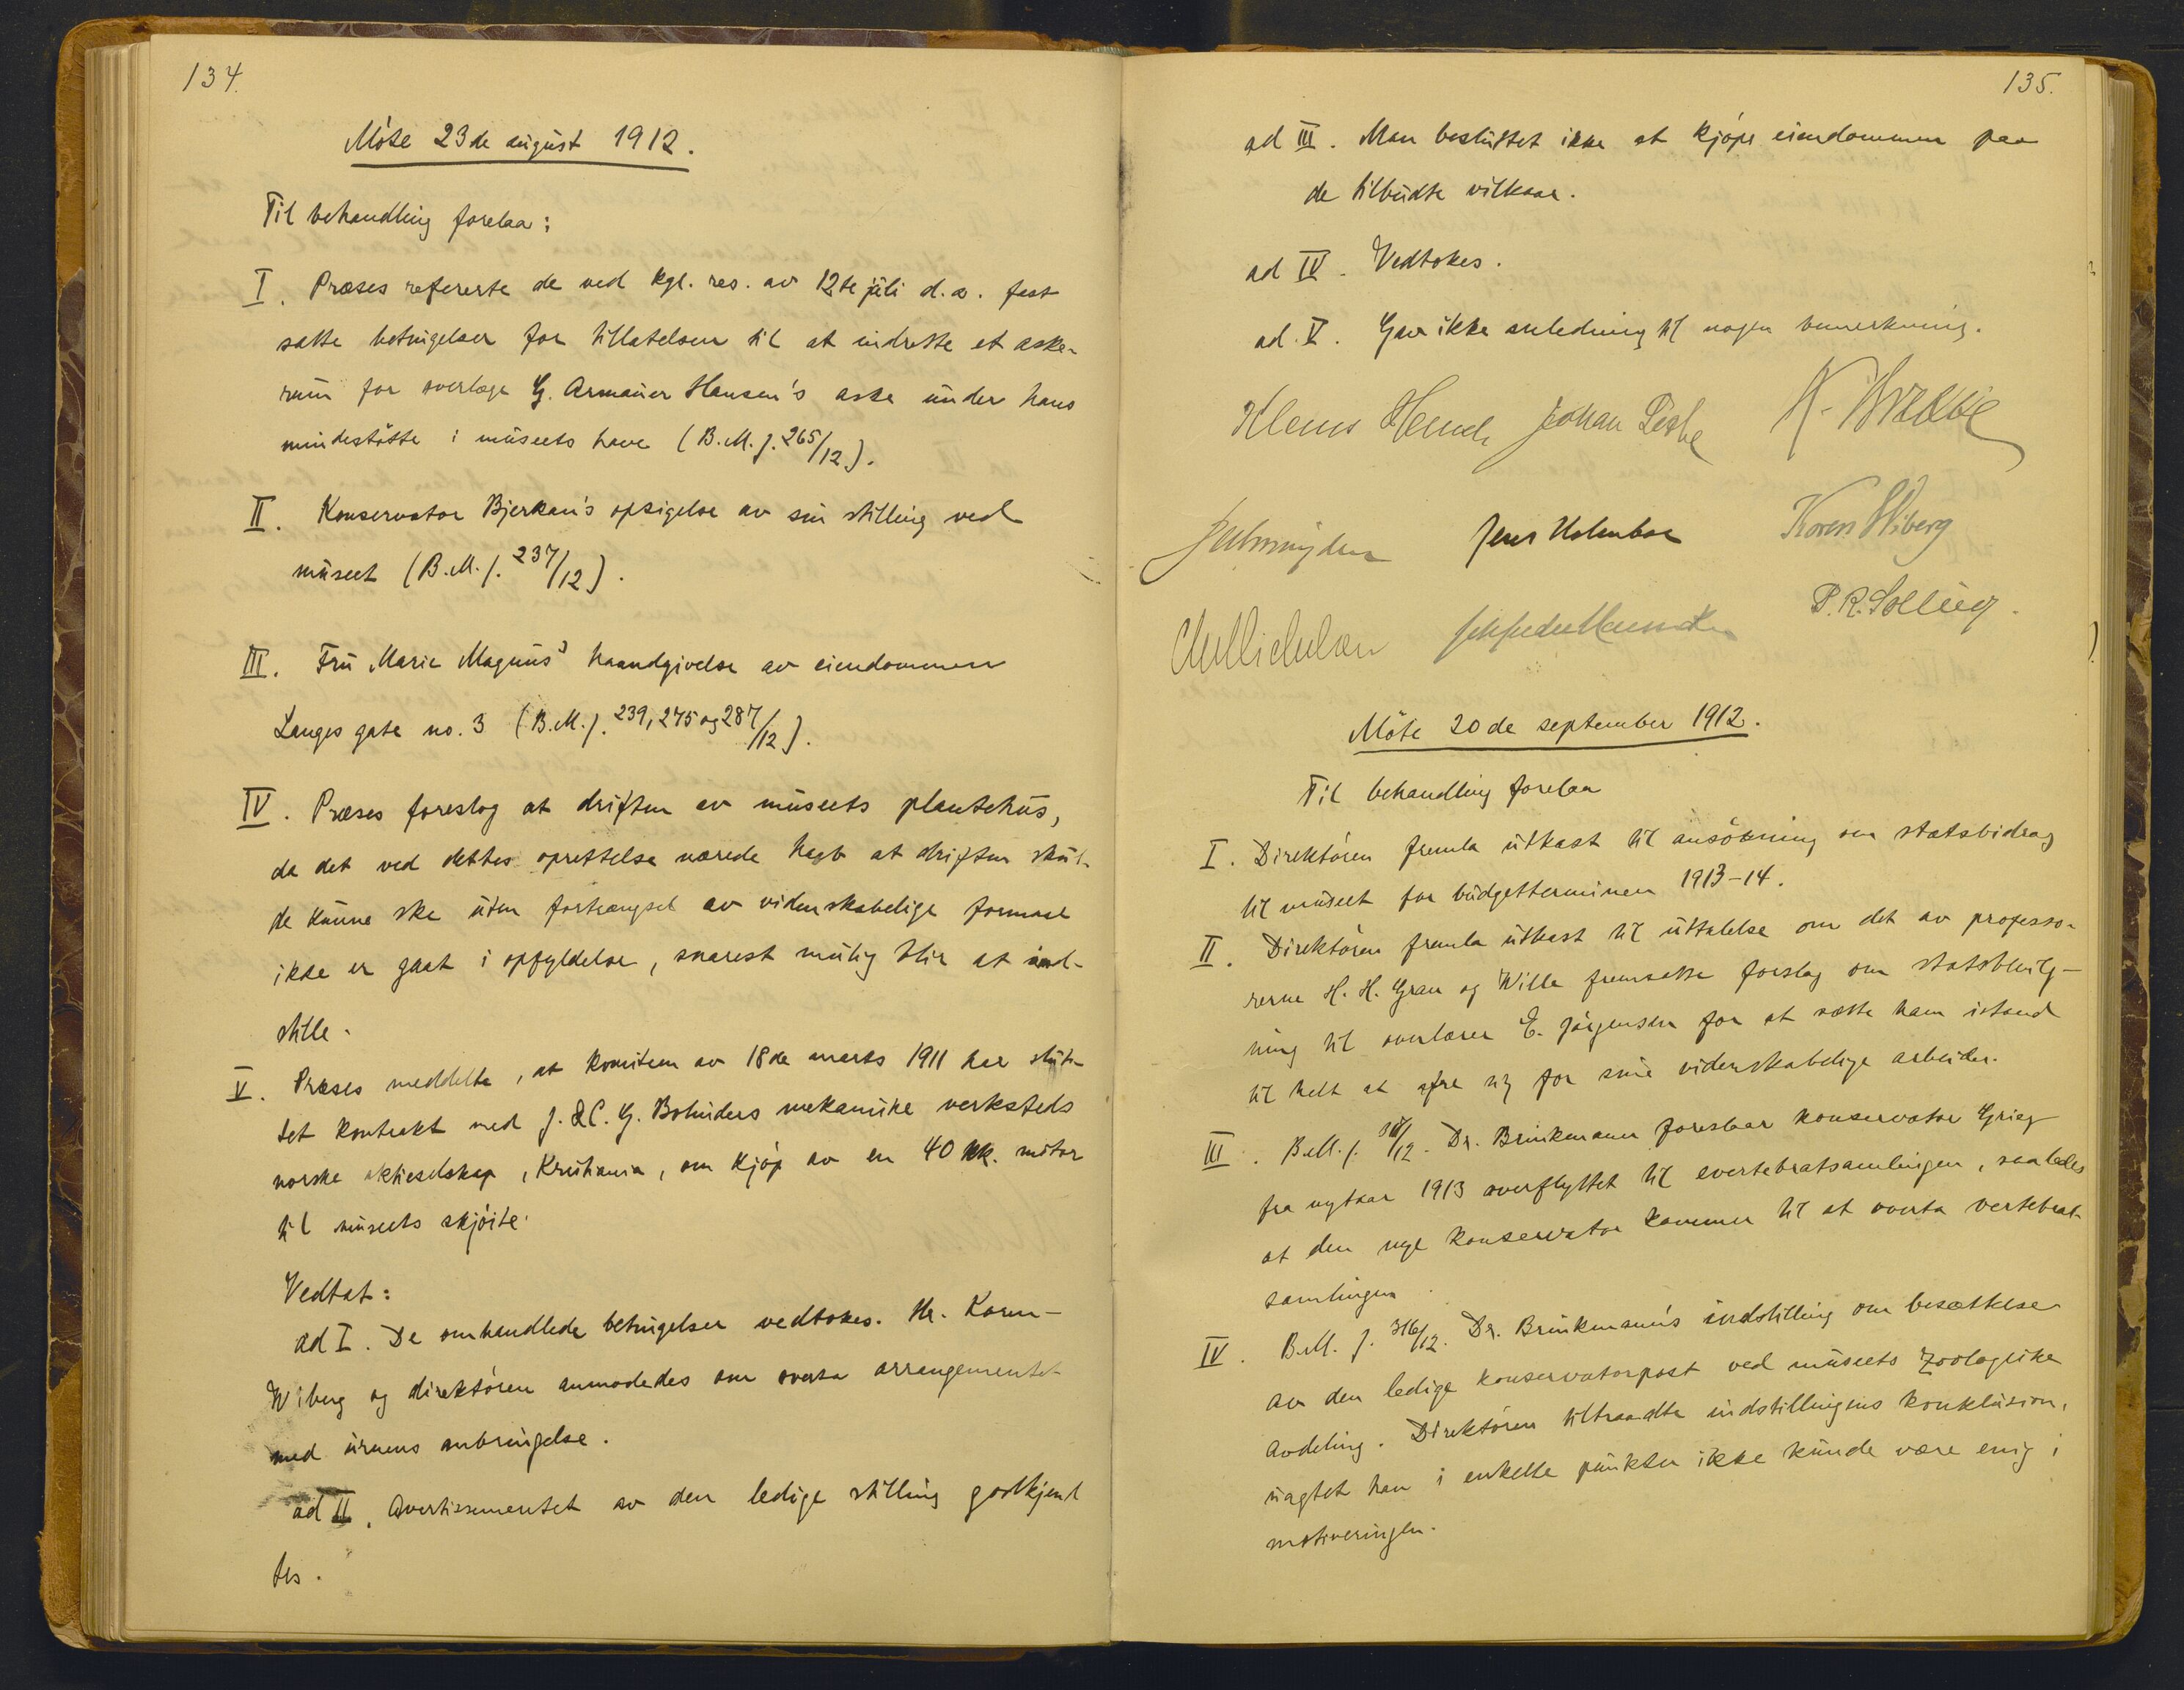 134.
Møte 23de august 1912.
Til behandling forelaa:
I. Præses refererte de ved kgl. res. av 12te juli d.a. fast
satte betingelser for tillatelsen til at indrette et aske-
rum for overlæge G. Armauer Hansen's aske under hans
mindestøtte i museets have (B.M.J. 265/12).
II. Konservator Bjerkan's opsigelse av sin stilling ved
museet (B.M.J. 237/12).
III. Fru Marie Magnus' haandgivelse av eiendommen
Langes gate no. 3 (B.M.J. 239, 275 og 287/12).
IV. Præses foreslog at driften av museets plantehus,
da det ved dettes oprettelse nærede haab at driften skul-
de kunne ske uten fortrængsel av videnskabelige formaal
ikke er gaat i opfyldelse, snarest mulig blir at ind-
stille.
V. Præses meddelte, at komiteen av 18de marts 1911 har slut-
tet kontrakt med J. & C. G. Bolinders mekaniske verksteds
norske aktieselskap, Kristiania, om kjøp av en 40 hk. motor
til museets skjøite.
Vedtat:
ad I. De omhandlede betingelser vedtokes. Hr. Koren-
Wiberg og direktøren anmodedes om overta arrangementet
med urnens anbringelse.
ad II. Avertissementet av den ledige stilling godkjend
tes.
135.
ad III. Man besluttet ikke at kjøpe eiendommen paa
de tilbudte vilkaar.
ad IV. Vedtokes.
ad. V. Gav ikke anledning til nogen bemerkning.
Klaus Hanch Johan Lothe
Jens Holmboe Koren Wiberg
P. R. Sollied.
Møte 20de september 1912.
Til behandling forelaa
I. Direktøren fremla utkast til ansøkning om statsbidrag
til museet for budgetterminen 1913-14.
II. Direktøren fremla utkast til uttalelse om det av professo-
rerne H. H. Gran og Wille fremsatte forslag om statsbevilg-
ning til overlærer E. Jørgensen for at sætte ham istand
til helt at ofre sig for sine videnskabelige arbeider.
III. B.M.J. /12. Dr. Brinkmann foreslaar konservator Grieg
fra nytaar 1913 overflyttet til evertebratsamlingen, saaledes
at den nye konservator kommer til at overta vertebrat-
samlingen.
IV. B.M.J. 316/12. Dr. Brinkmann's indstilling om besættelse
av den ledige konservatorpost ved museets zoologiske
avdeling. Direktøren tiltraadte indstillingens konklusion,
uagtet han i enkelte punkter ikke kunde være enig i
motiveringen.